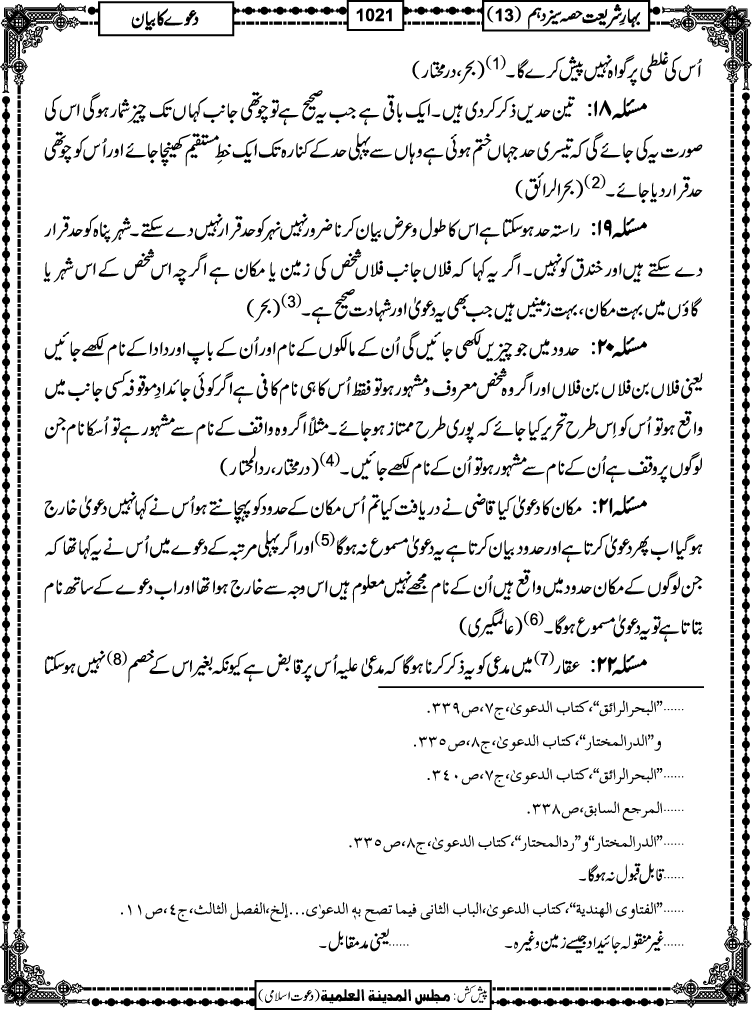 بہارِ شریعت حصہ سیزدہم (13)
1021
دعوے کا بیان
اُس کی غلطی پر گواہ نہیں پیش کرے گا۔(1) (بحر، درمختار)
مسئلہ ۱۸: تین حدیں ذکر کردی ہیں۔ ایک باقی ہے جب یہ صحیح ہے تو چوتھی جانب کہاں تک چیز شمار ہوگی اس کی
صورت یہ کی جائے گی کہ تیسری حد جہاں ختم ہوئی ہے وہاں سے پہلی حد کے کنارہ تک ایک خطِ مستقیم کھینچا جائے اور اُس کو چوتھی
حد قرار دیا جائے۔(2) (بحرالرائق)
مسئلہ ۱۹: راستہ حد ہوسکتا ہے اس کا طول وعرض بیان کرنا ضرور نہیں نہر کو حد قرار نہیں دے سکتے۔ شہر پناہ کو حد قرار
دے سکتے ہیں اور خندق کو نہیں۔ اگر یہ کہا کہ فلاں جانب فلاں شخص کی زمین یا مکان ہے اگرچہ اس شخص کے اس شہر یا
گاؤں میں بہت مکان، بہت زمینیں ہیں جب بھی یہ دعویٰ اور شہادت صحیح ہے۔(3) (بحر)
مسئلہ ۲۰: حدود میں جو چیزیں لکھی جائیں گی اُن کے مالکوں کے نام اور اُن کے باپ اور دادا کے نام لکھے جائیں
یعنی فلاں بن فلاں بن فلاں اور اگر وہ شخص معروف ومشہور ہو تو فقط اُس کا ہی نام کافی ہے اگر کوئی جائدادِ موقوفہ کسی جانب میں
واقع ہو تو اُس کو اِس طرح تحریر کیا جائے کہ پوری طرح ممتاز ہو جائے۔ مثلاً اگر وہ واقف کے نام سے مشہور ہے تو اُسکا نام جن
لوگوں پر وقف ہے اُن کے نام سے مشہور ہو تو اُن کے نام لکھے جائیں۔(4) (درمختار، ردالمحتار)
مسئلہ ۲۱: مکان کا دعویٰ کیا قاضی نے دریافت کیا تم اُس مکان کے حدود کو پہچانتے ہو اُس نے کہا نہیں دعویٰ خارج
ہوگیا اب پھر دعویٰ کرتا ہے اور حدود بیان کرتا ہے یہ دعویٰ مسموع نہ ہوگا(5) اور اگر پہلی مرتبہ کے دعوے میں اُس نے یہ کہا تھا کہ
جن لوگوں کے مکان حدود میں واقع ہیں اُن کے نام مجھے نہیں معلوم ہیں اس وجہ سے خارج ہوا تھا اور اب دعوے کے ساتھ نام
بتاتا ہے تو یہ دعویٰ مسموع ہوگا۔(6) (عالمگیری)
مسئلہ ۲۲: عقار(7) میں مدعی کو یہ ذکر کرنا ہوگا کہ مدعیٰ علیہ اُس پر قابض ہے کیونکہ بغیر اس کے خصم(8) نہیں ہوسکتا
......”البحرالرائق“، کتاب الدعویٰ، ج۷، ص۳۳۹.
و”الدرالمختار“، کتاب الدعویٰ، ج۸، ص۳۳۵.
......”البحرالرائق“، کتاب الدعویٰ، ج۷، ص۳۴۰.
......المرجع السابق، ص۳۳۸.
......”الدرالمختار“و”ردالمحتار“، کتاب الدعویٰ، ج۸، ص۳۳۵.
......قابل قبول نہ ہوگا۔
......”الفتاوی الھندیة“، کتاب الدعویٰ، الباب الثانی فیما تصح بہ الدعوٰی...إلخ، الفصل الثالث، ج٤، ص۱۱.
......غیر منقولہ جائیداد جیسے زمین وغیرہ۔ ......یعنی مد مقابل۔
پیش کش: مجلس المدینة العلمیة (دعوت اسلامی)